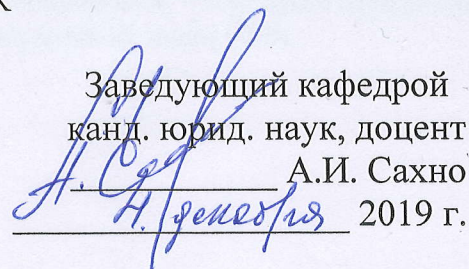 Заведующий кафедрой
канд. юрид. наук, доцент
А.И. Сахно
декабря 2019 г.